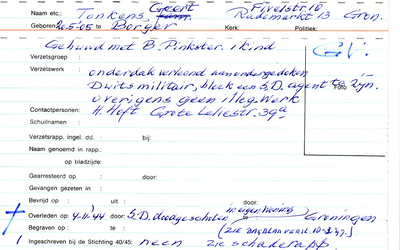 Geert Fivelstr. 10
Naam etc.: Tonkens, Rademarkt 13 Gron.
Geboren: 2.5.'05 te Borger Kerk: Politiek:
Gehuwd met B. Pinkster. 1 kind
Verzetsgroep :
Verzetswerk : onderdak verleend aan ondergedoken
Duits militair, bleek een S.D. agent te zijn.
overigens geen illeg. werk
Contactpersonen: H. Hoft Grote Leliestr. 39a
Schuilnamen :
Verzetsrapp. ingel. dd. : bij:
Naam genoemd in rapp.:
op bladzijde:
Gearresteerd op : door:
Gevangen gezeten in :
Bevrijd op : uit : door:
in eigen woning
Overleden op : 4-11-'44 door: S.D. doodgeschoten te Groningen
Begraven op : te :
Ingeschreven bij de Stichting 40/45: neen zie schaderapp.